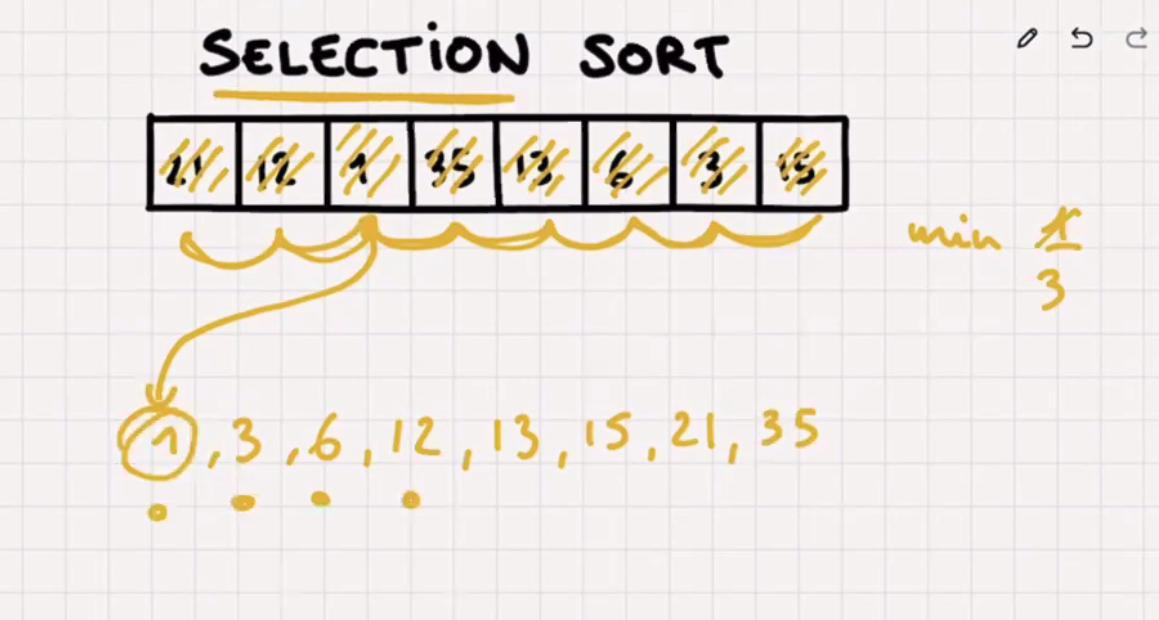 SELECTION SORT
21 12 1 35 13 6 3 15
min 1
3
1, 3, 6, 12, 13, 15, 21, 35